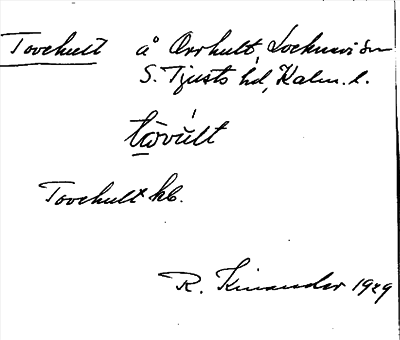 Tovehult å Orrhult, Locknevi sn
S. Tjusts hd, Kalm. l.
tωvŭlt
Tovehult kb.
R. Kinander 1929